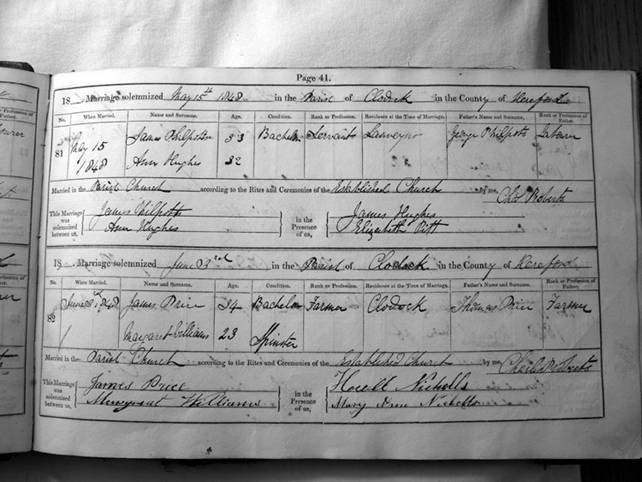 Page 41.
18 Marriage solemnized May 15th 1848 in the Parish of Clodock in the County of Hereford
No. When Married. Name and Surname. Age. Condition. Rank or Profession. Residence at the Time of Marriage. Father's Name and Surname. Rank or Profession of Father.
81 May 15 James Philpotts 33 Bachelor Servant George Philpotts
1848 Ann Hughes 32 Clodock
Married in the Parish Church according to the Rites and Ceremonies of the Established Church by me, Chs Roberts
This Marriage was solemnized between us, James Philpotts in the Presence of us, James Hughes
Ann Hughes Elizabeth Pitt
18 Marriage solemnized June 3rd in the Parish of Clodock in the County of Hereford
No. When Married. Name and Surname. Age. Condition. Rank or Profession. Residence at the Time of Marriage. Father's Name and Surname. Rank or Profession of Father.
82 June 1848 James Price 34 Bachelor Farmer Clodock Thomas Price Farmer
Margaret Williams 23 Spinster
Married in the Parish Church according to the Rites and Ceremonies of the Established Church by me, Chls Roberts
This Marriage was solemnized between us, James Price in the Presence of us, Howell Nicholls
Margaret Williams Mary Ann Nicholls